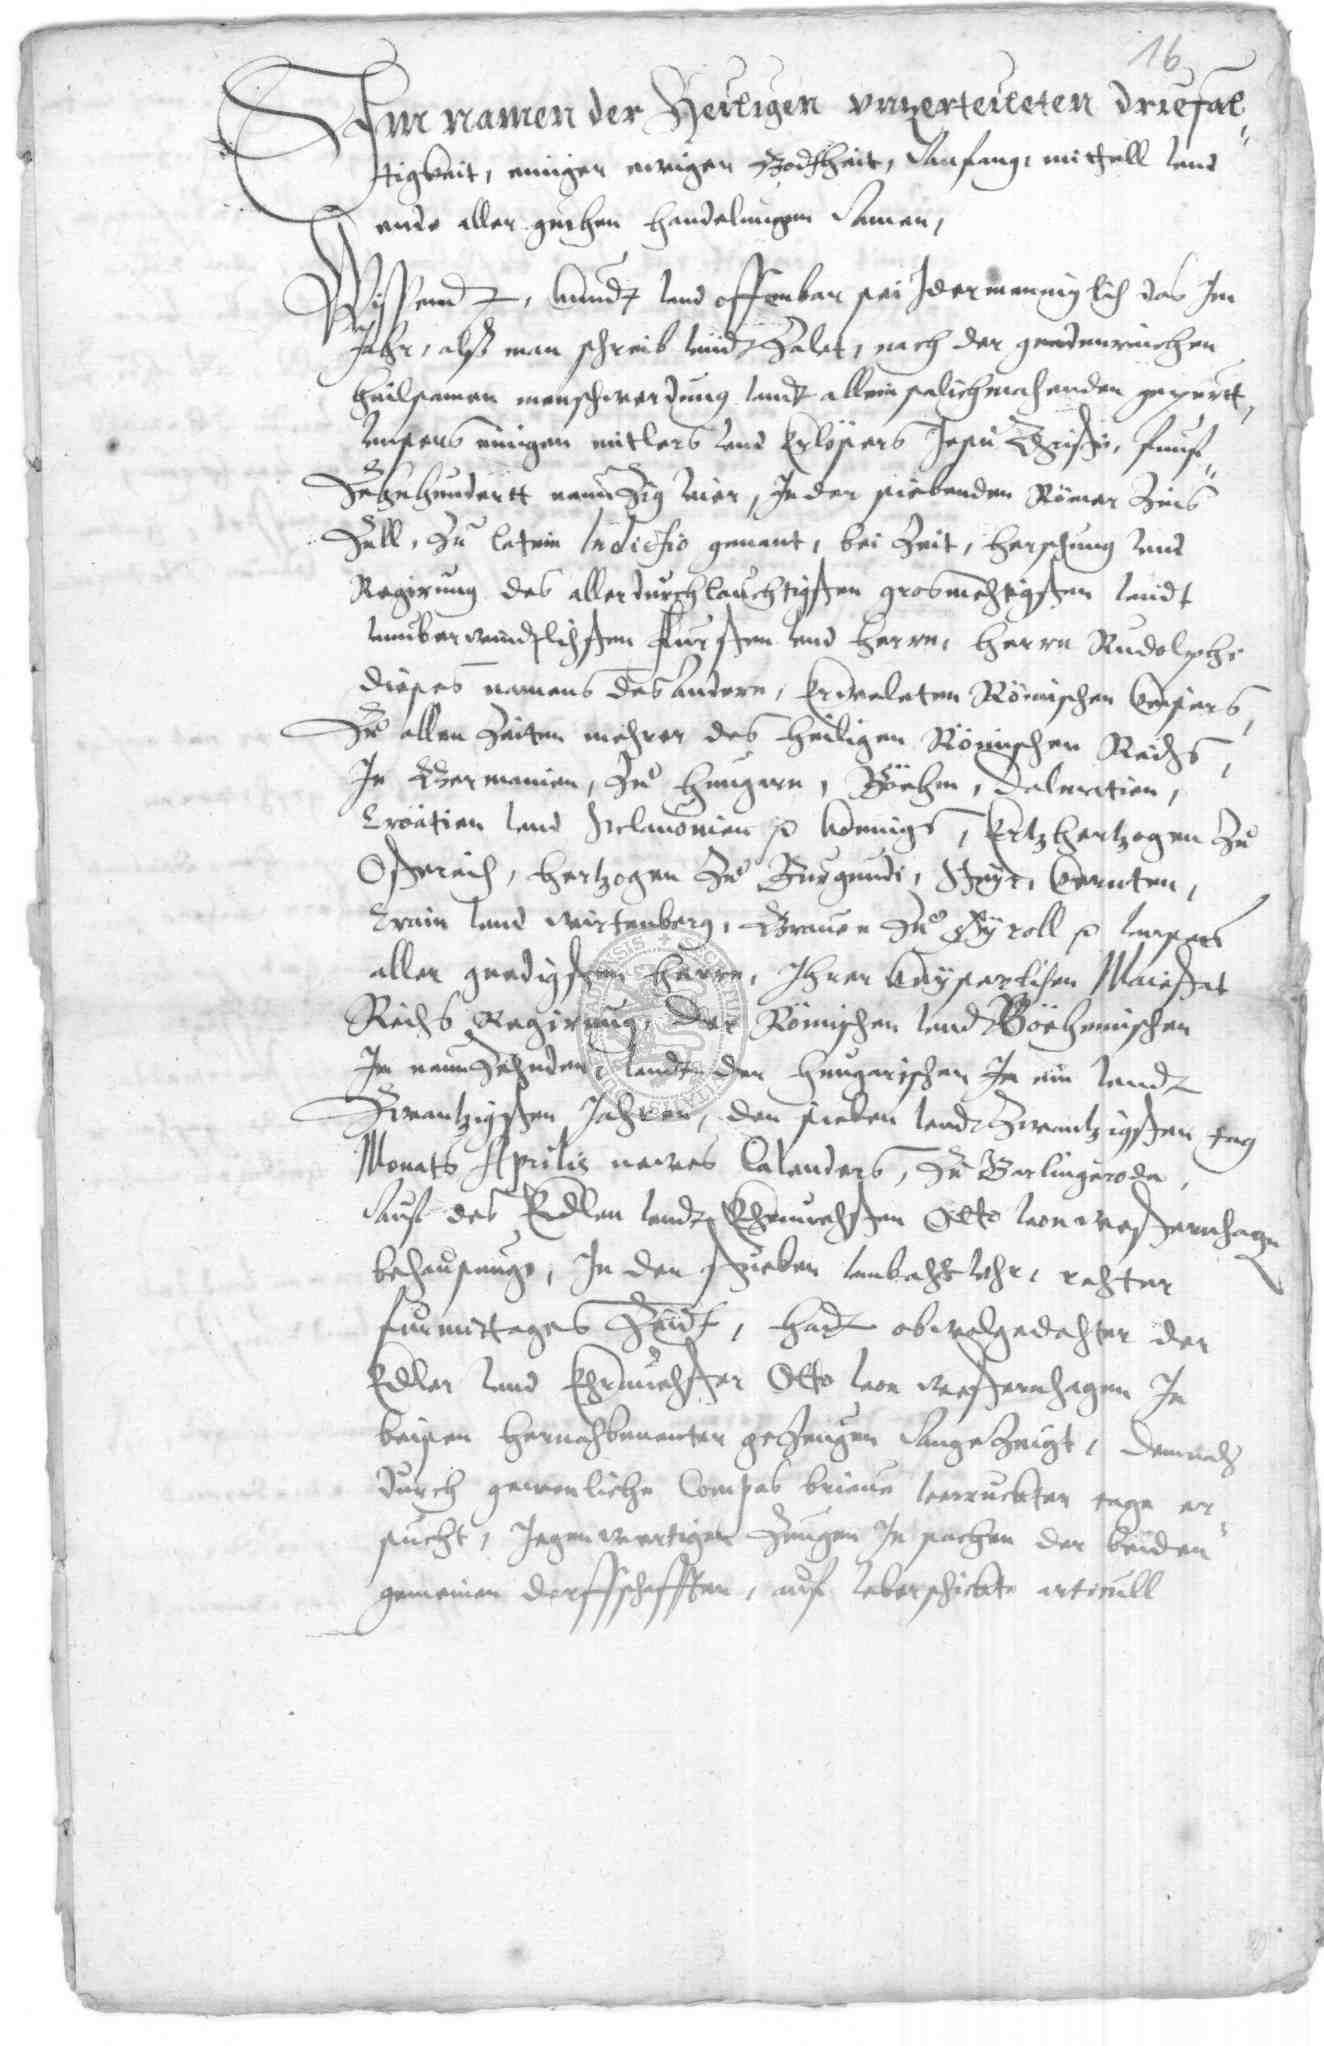 16
Im namen der Heiligen vnzerteileten driefal„
tigkeit, einiger ewiger Gottheit, Anfang, mittell vnd
ende aller guthen handelungen Amen,
Wyssendt, kundt vnd offenbar sei Idermenniglich das Im
Jahr, alß man schreib vnd Zalet, nach der gnadenreichen
heilsamen menschwerdung vndt allein salichmachenden gepurtt,
vnsers einigen mitlers vnd Erlösers Jesu Christi, funf„
Zehnhundertt neuntzig vier, In der siebenden Römer Zins
Zall, Zu latein Indictio genant, bei Zeit, herschung vnd
Regirung des allerdurchlauchtigsten grosmechtigsten vndt
vnuberwindtlichsten Fursten vnd Herrn, Herrn Rudolphi
dieses namens des Andern, Erweleten Römischen Keisers,
Zu allen Zeiten mehrer des Heiligen Römischen Reichs,
In Germanien, Zu Hungarn, Böehm, Dalmatien,
Croatien vnd Sclauonien p Koenigs, Ertzhertzogen Zu
Osterreich, Hertzogen Zu Burgundi, Steyr, Kernten,
Crain vnd wirtenberg, Grauen Zu Tyroll p vnsers
aller gnedigsten Herrn, Ihrer Kayserlichen Maiestat
Reichs Regirung, der Römischen vnd Böehemischen
Im neunZehnden, vndt der Hungarischen Im ein vndt
Zwantzigsten Jahren, den sieben vndt Zwantzigsten tag
Monats Aprilis newes Calenders, Zu Berlingeroda,
Auf des Edlen vndt Ehrnuehsten Otto von westernhagen
behausunge, In der stueben vmb acht Vhr, rechter
furmittages Zeidt, hadt obwolgedachter der
Edler vnd Ehrnuehster Otto von westernhagen In
beisein hernachbenenter geZeugen AngeZeigt, demnach
durch gewonliche Compas brieue verruckter tage er„
sucht, Jegenwertigen Zeugen In sachen der beiden
gemeinen dorffschafften, auf vberschickte articull